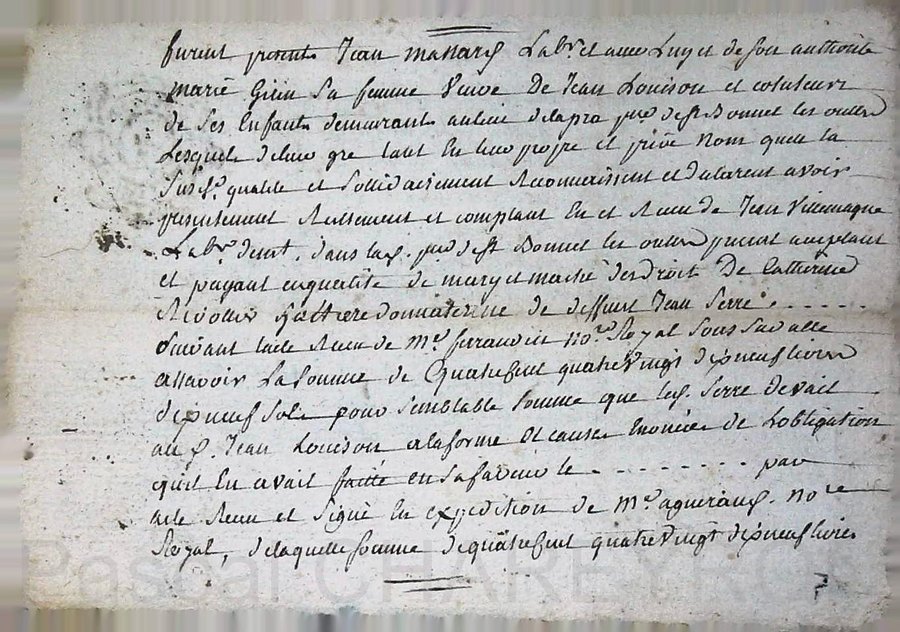 furent presents Jean massard Lab.r et avec luy et de son authorité
marie Giein sa femme veuve De Jean Louison et cotuteurs
de ses Enfants demeurants au lieu delapra p.sse de St Bonnet les oulles
Lesquels deleur gre tant En leur propre et privé Nom quen la
susd.e qualité et sollidairement Reconnaissent et declarent avoir
presentement Reellement et comptant Eu et Receu de Jean Villemagne
Lab.r demt. dans lad. p.sse de St Bonnet les oulles present acceptant
et payant enqualité de mary et maitre des droits De Catherine
heritiere donnatairesse de deffunt Jean Serre . . . . . .
Suivant lacte Receu de M.e no.re Royal Sous Sa datte
assavoir La Somme de Quatre Cent quatre vingt dixneuf livres
dixneuf Sols pour Semblable Somme que led. Serre devait
au d. Jean Louison alaforme Et causes Enoncées de Lobligation
quil En avait faitte en sa faveur le . . . . . . . . par
acte Receu et Signé En expedition de M.e no.re
Royal, delaquelle Somme de quatre Cent quatre vingt dixneuf livres
Pascal CHAREYRON